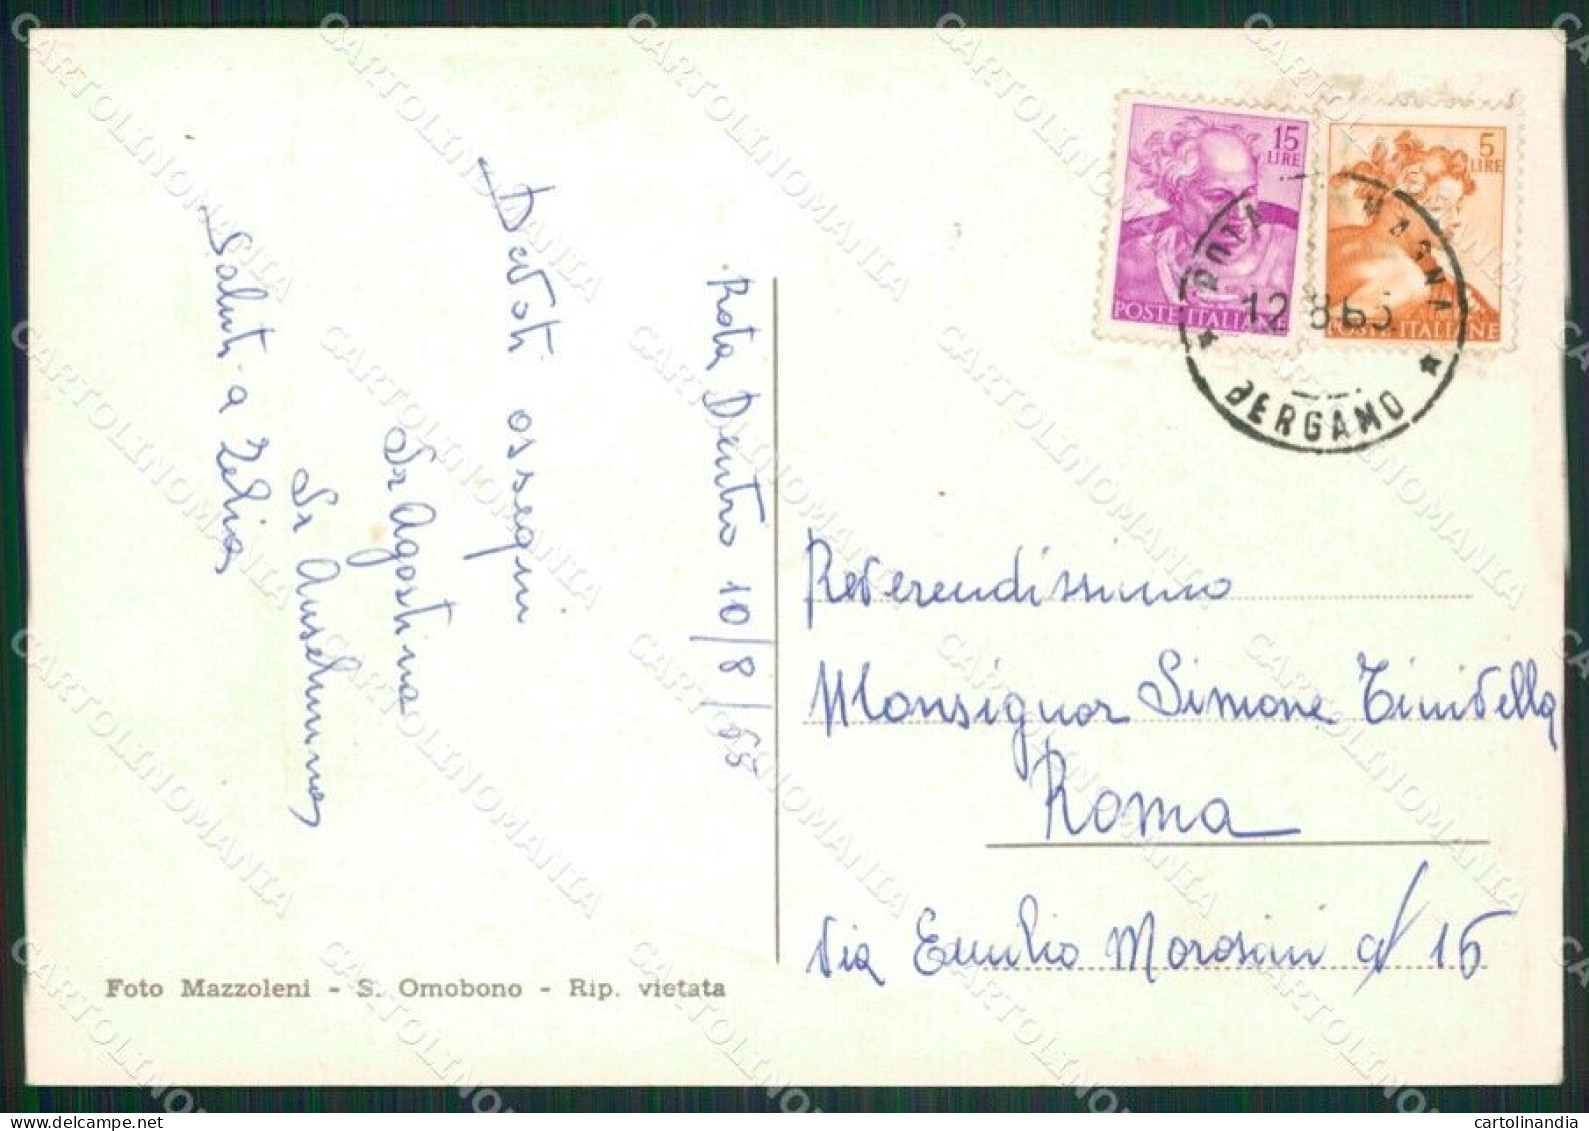 Rota Dentro 10/8/65
Devoti ossequi
Sr Agostina
Sr Anselmina
Saluti a Zelia
Foto Mazzoleni - S. Omobono - Rip. vietata
15
LIRE
POSTE ITALIANE
5
LIRE
POSTE ITALIANE
12 8 65
BERGAMO
Reverendissimo
Monsignor Simone
Roma
Via Emilio Morosini 16
CARTOLINOMANIA
cartolinandia